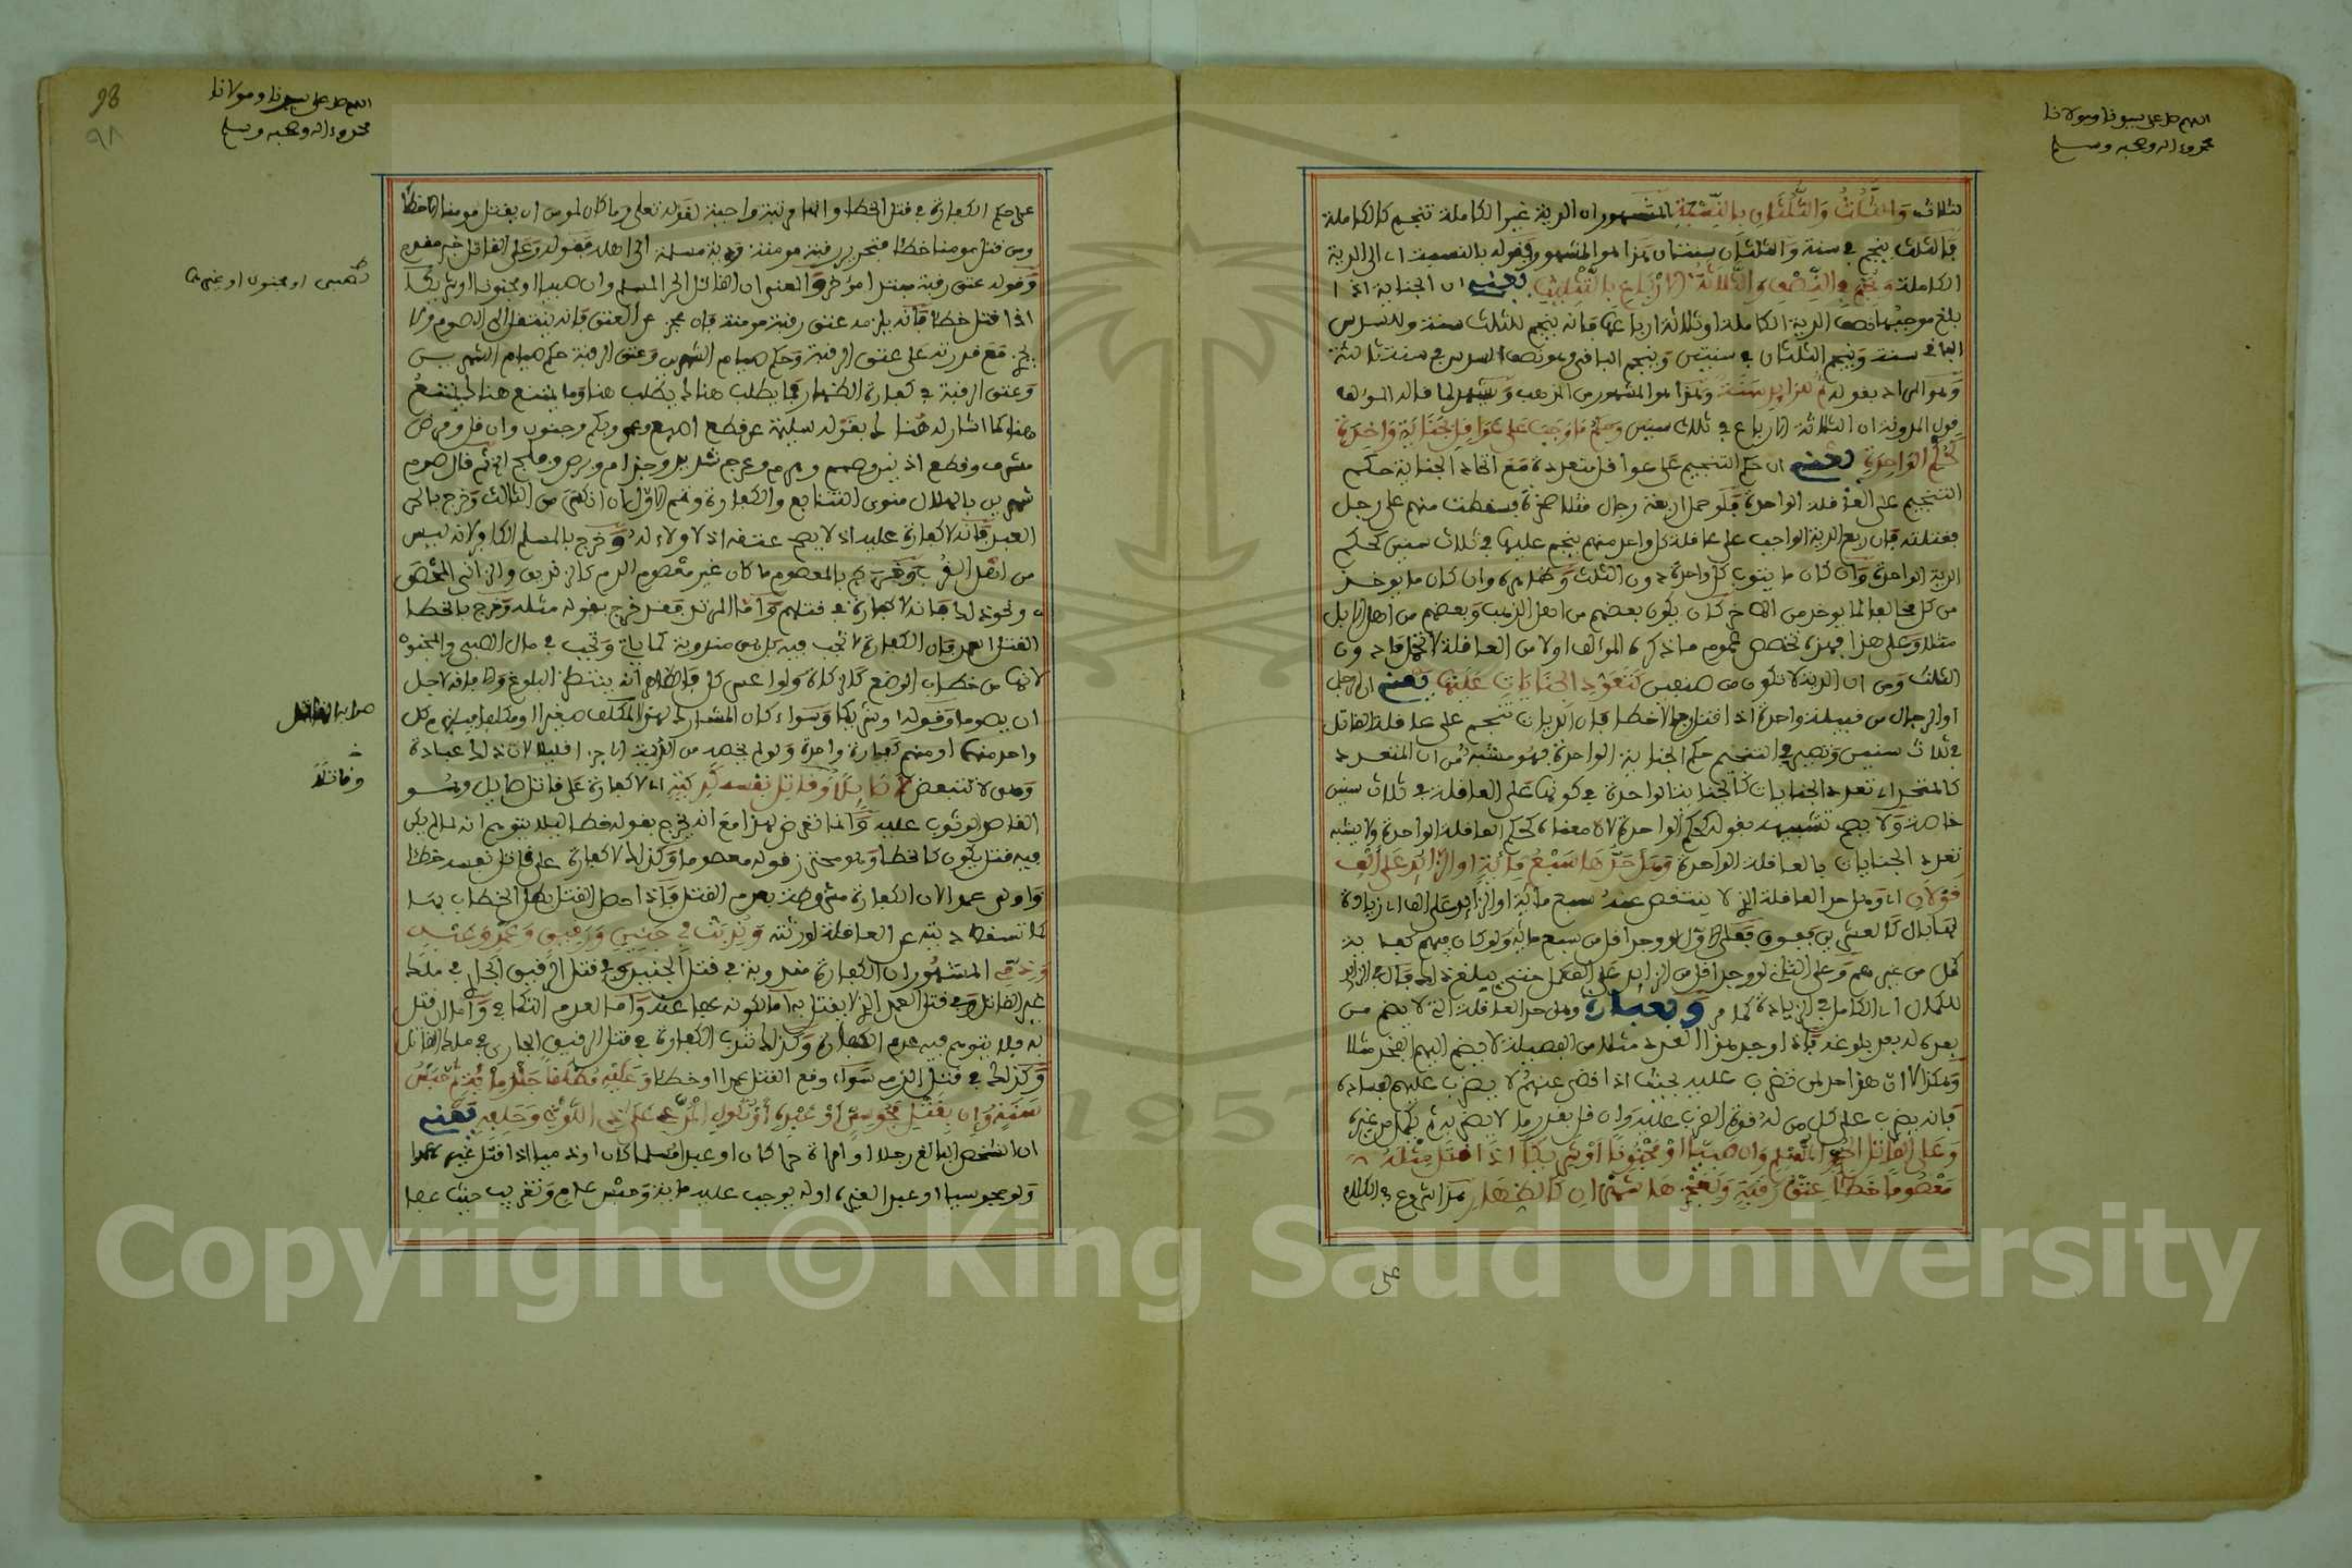 اللهم صل على سيدنا ومولانا
محمد وءاله وصحبه وسلم
لثلاث وَالثُّلُثُ وَالثُّلُثَانِ بِالنِّسْبَةِ المشهور ان الدية غير الكاملة تنجم كالكاملة
فالثلث ينجم في سنة والثلثان سنتان هذا هو المشهور وقوله بالنسبة اي الى الدية
الكاملة وَنُجِّمَ فِي النِّصْفِ وَالثَّلَاثَةِ الْأَرْبَاعِ بِالتَّثْلِيثِ يعني ان الجناية اذا
بلغ موجبها نصف الدية الكاملة او ثلاثة ارباعها فانه ينجم للثلث سنة وللسدس
الباقي سنة وينجم الثلثان في سنتين وينجم الباقي وهو نصف السدس في سنة ثالثة
وهو المراد بقوله ثُمَّ لِلزَّائِدِ سَنَةٌ وهذا هو المشهور من المذهب ويشهد لما قاله المؤلف
قول المدونة ان الثلاثة الارباع في ثلاث سنين وَحُكْمُ مَا وَجَبَ عَلَى عَوَاقِلَ بِجِنَايَةٍ وَاحِدَةٍ
كَحُكْمِ الْوَاحِدَةِ يعني ان حكم التنجيم على عواقل متعددة مع اتحاد الجناية حكم
التنجيم على العاقلة الواحدة فلو حمل اربعة رجال مثلا صخرة فسقطت منهم على رجل
فقتلته فان ربع الدية الواجب على عاقلة كل واحد منهم ينجم عليها في ثلاث سنين كحكم
الدية الواحدة وان كان ما ينوب كل واحدة دون الثلث وظاهره وان كان ما يوخذ
من كل مخالفا لما يوخذ من الاخر كان يكون بعضهم من اهل الذهب وبعضهم من اهل الابل
مثلا وعلى هذا فهذه تخصص عموم ما ذكره المؤلف اولا من العاقلة لا تحمل ما دون
الثلث ومن ان الدية لا تكون من صنفين كَتَعَدُّدِ الْجِنَايَاتِ عَلَيْهَا يعني ان الرجل
او الرجال من قبيلة واحدة اذا قتلوا رجالا خطا فان الديات تنجم على عاقلة القاتل
في ثلاث سنين وتصير في التنجيم حكم الجناية الواحدة فهو مشبه من ان المتعدد
كالمتحد اي تعدد الجنايات كالجناية الواحدة في كونها على العاقلة في ثلاث سنين
خاصة ولا يصح تشبيهه بقوله كحكم الواحدة لان معناه كحكم العاقلة الواحدة ولا يشبه
تعدد الجنايات بالعاقلة الواحدة وَهَلْ حَدُّهَا سَبْعُ مِائَةٍ أَوِ الزَّائِدُ عَلَى أَلْفٍ
قَوْلَانِ اي وهل حد العاقلة الذي لا ينتقص عنه سبع مائة او الزائد على الف زيادة
لها بال كالعشرين فعلى الاول لو وجد اقل من سبع مائة ولو كان فيهم كفاية
كمل من غيرهم وعلى الثاني لو وجد اقل من الزائد على الف كمل حتى يبلغ ذلك
للكمال اي الكامل في الزيادة كما مر وبعبارة وهل حد العاقلة اي لا يضم من
بعده له بعد بلوغه فاذا وجد هذا العدد مثلا من الفصيلة لا يضم اليهم الفخذ مثلا
فانه يضرب على كل من له قوة الضرب عليه وان قل بقدر ما لا يضر به ثم يكمل من غيره
وَعَلَى الْقَاتِلِ الْحُرِّ الْمُسْلِمِ وَإِنْ صَبِيًّا أَوْ مَجْنُونًا أَوْ شَرِيكًا إِذَا قَتَلَ مِثْلَهُ
مَعْصُومًا خَطَأً عِتْقُ رَقَبَةٍ وَلِعَجْزِهَا شَهْرَانِ كَالظِّهَارِ هذا شروع في الكلام
على
98
٩٨
اللهم صل على سيدنا ومولانا
محمد وءاله وصحبه وسلم
على حكم الكفارة في قتل الخطا وانها مرتبة واجبة لقوله تعلى وما كان لمومن ان يقتل مومنا الا خطأ
ومن قتل مومنا خطأ فتحرير رقبة مومنة ودية مسلمة الى اهله فقوله وعلى القاتل خبر مقدم
وقوله عتق رقبة مبتدا مؤخر والمعنى ان القاتل الحر المسلم وان صبيا او مجنونا او شريكا
كصبي او مجنون او غيرهما
اذا قتل خطأ فانه يلزمه عتق رقبة مومنة فان عجز عن العتق فانه ينتقل الى الصوم ولا
يجزي مع قدرته على عتق الرقبة وحكم صيام الشهرين وعتق الرقبة حكم صيام الشهرين
وعتق الرقبة في كفارة الظهار فما يطلب هناك يطلب هنا وما يمنع هناك يمنع
هنا كما اشار له هناك بقوله سليمة عن قطع اصبع وعمى وبكم وجنون وان قل ومرض
مشرف وقطع اذنين وصمم وهرم وعرج شديد وجذام وبرص وفلج الخ ثم قال صوم
شهرين بالهلال منوي التتابع والكفارة وتمم الاول ان انكسر من الثالث وخرج بالحر
العبد فانه لا كفارة عليه اذ لا يصح عتقه اذ لا ولاء له وخرج بالمسلم الكافر لانه ليس
من اهل القرب وخرج بالمعصوم ما كان غير معصوم الدم كالزنديق والزاني المحصن
ونحو ذلك فانه لا كفارة في قتلهم واما المرتد فقد خرج بقوله مثله وخرج بالخطا
القتل العمد فان الكفارة لا تجب فيه بل هي مندوبة كما ياتي وتجب في مال الصبي والمجنون
لانها من خطاب الوضع كالزكاة ولو اعسر كل فالظاهر انه ينتظر البلوغ والافاقة لاجل
ان يصوما وقوله او شريكا وسواء كان المشارك لهذا المكلف صغيرا او مكلفا فيلزم كل
واحد منهما او منهم كفارة واحدة ولو لم يخصه من الدية الا جزء قليل لان ذلك عبادة
وهي لا تتبعض لَا صَائِلًا وَقَاتِلَ نَفْسِهِ كَدِيَتِهِ اي لا كفارة على قاتل صايل وهو
القاصد الوثوب عليه وانما تعرض لهذا مع انه يخرج بقوله خطا ليلا يتوهم انه لما لم يكن
فيه قتل يكون كالخطا وهو محترز قوله معصوما وكذلك لا كفارة على قاتل نفسه خطا
واولى عمدا لان الكفارة مشروطة بعدم القتل فاذا حصل القتل بطل الخطاب بها
كما تسقط ديته عن العاقلة لورثته وَنُدِبَتْ فِي جَنِينٍ وَرَقِيقٍ وَعَمْدٍ وَعَبْدٍ
وَذِمِّيٍّ المشهور ان الكفارة مندوبة في قتل الجنين وفي قتل الرقيق الخ في ملك
غير القاتل وفي قتل العمد الذي لا يقتل به اما لكونه عفا عنه واما لعدم التكافي واما ان قتل
به فلا يتوهم فيه عدم الكفارة وكذلك تندب الكفارة في قتل الرقيق الجاري في ملك القاتل
وكذلك في قتل الذمي سواء وقع القتل عمدا او خطأ وَعَلَيْهِ مُطْلَقًا جَلْدُ مِائَةٍ ثُمَّ حَبْسُ
سَنَةٍ وَإِنْ بِقَتْلِ مَجُوسِيٍّ أَوْ عَبْدِهِ أَوْ نُكُولِ الْمُدَّعِي عَلَى ذِي اللَّوْثِ وَحَلِفِهِ يعني
ان الشخص البالغ رجلا او امراة حرا كان او عبدا مسلما كان او ذميا اذا قتل غيره عمدا
ولو مجوسيا او عبدا لغيره او له يوجب عليه مائة وحبس عام وتغريب حيث عفا
صوابه القاتل